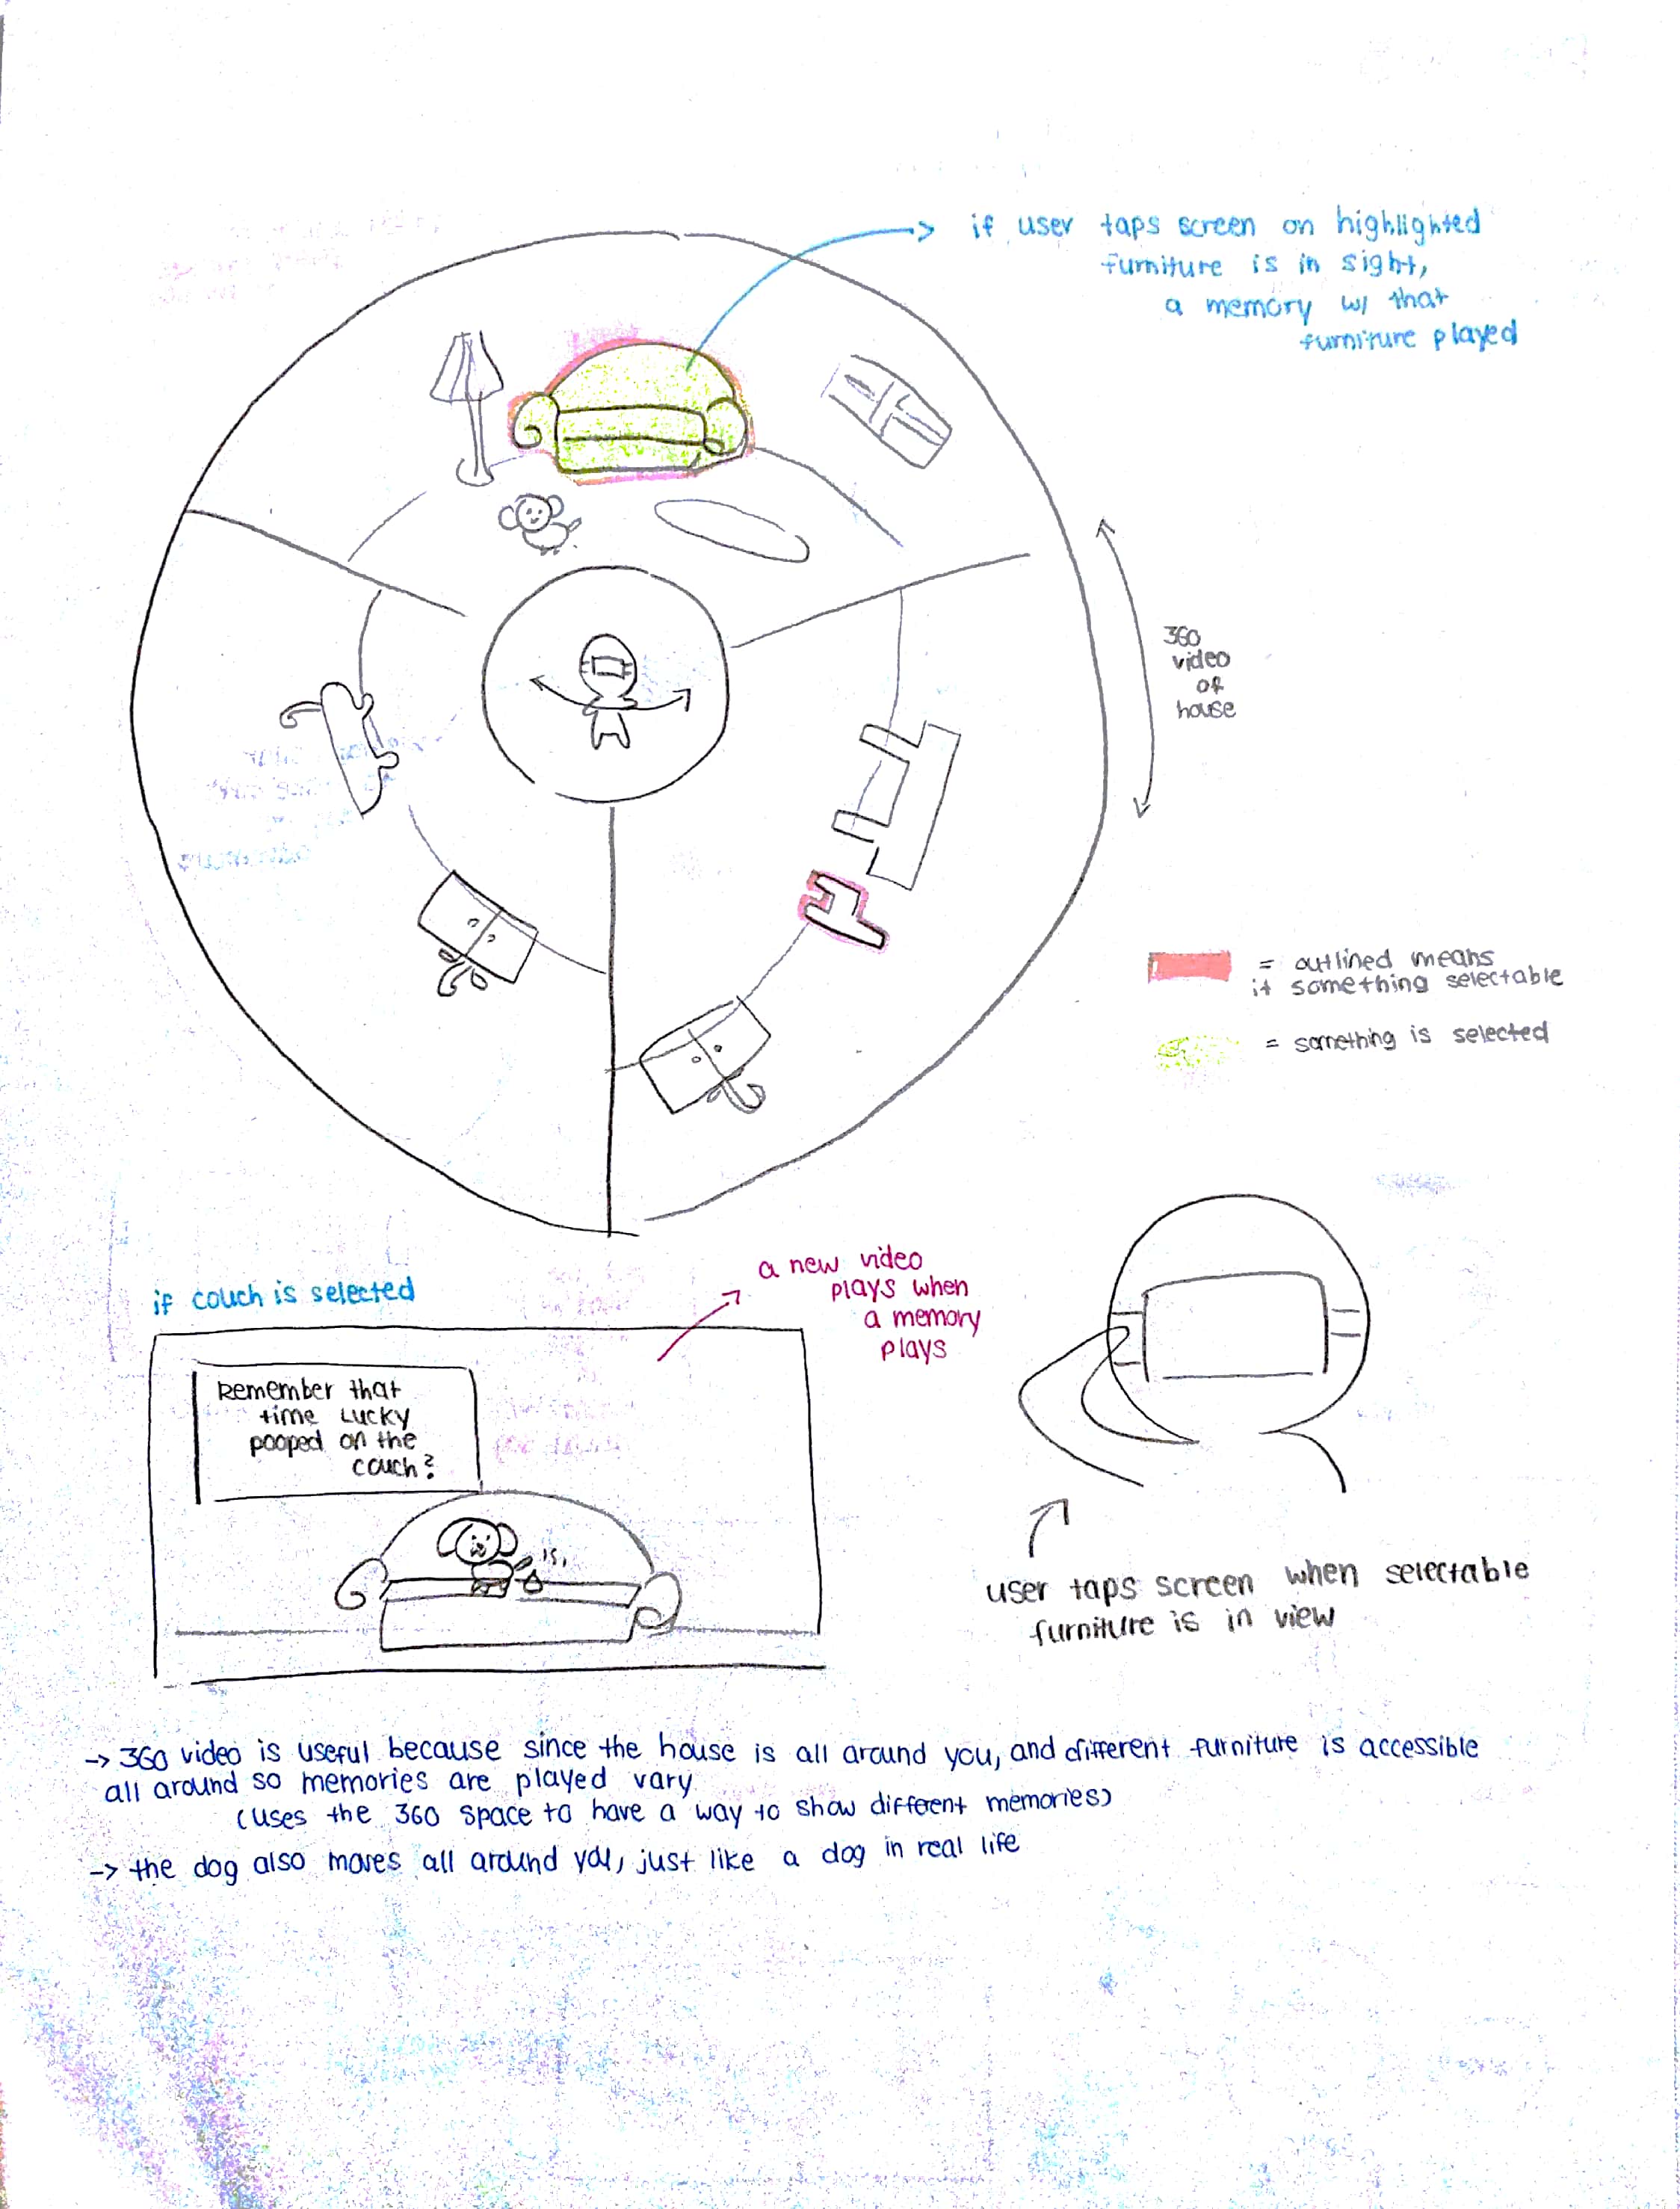 if user taps screen on highlighted
furniture is in sight,
a memory w/ that
furniture played
360
video
of
house
= outlined means
it something selectable
= something is selected
if couch is selected
a new video
plays when
a memory
plays
Remember that
time Lucky
pooped on the
couch?
user taps screen when selectable
furniture is in view
-> 360 video is useful because since the house is all around you, and different furniture is accessible
all around so memories are played vary
(uses the 360 space to have a way to show different memories)
-> the dog also moves all around you, just like a dog in real life